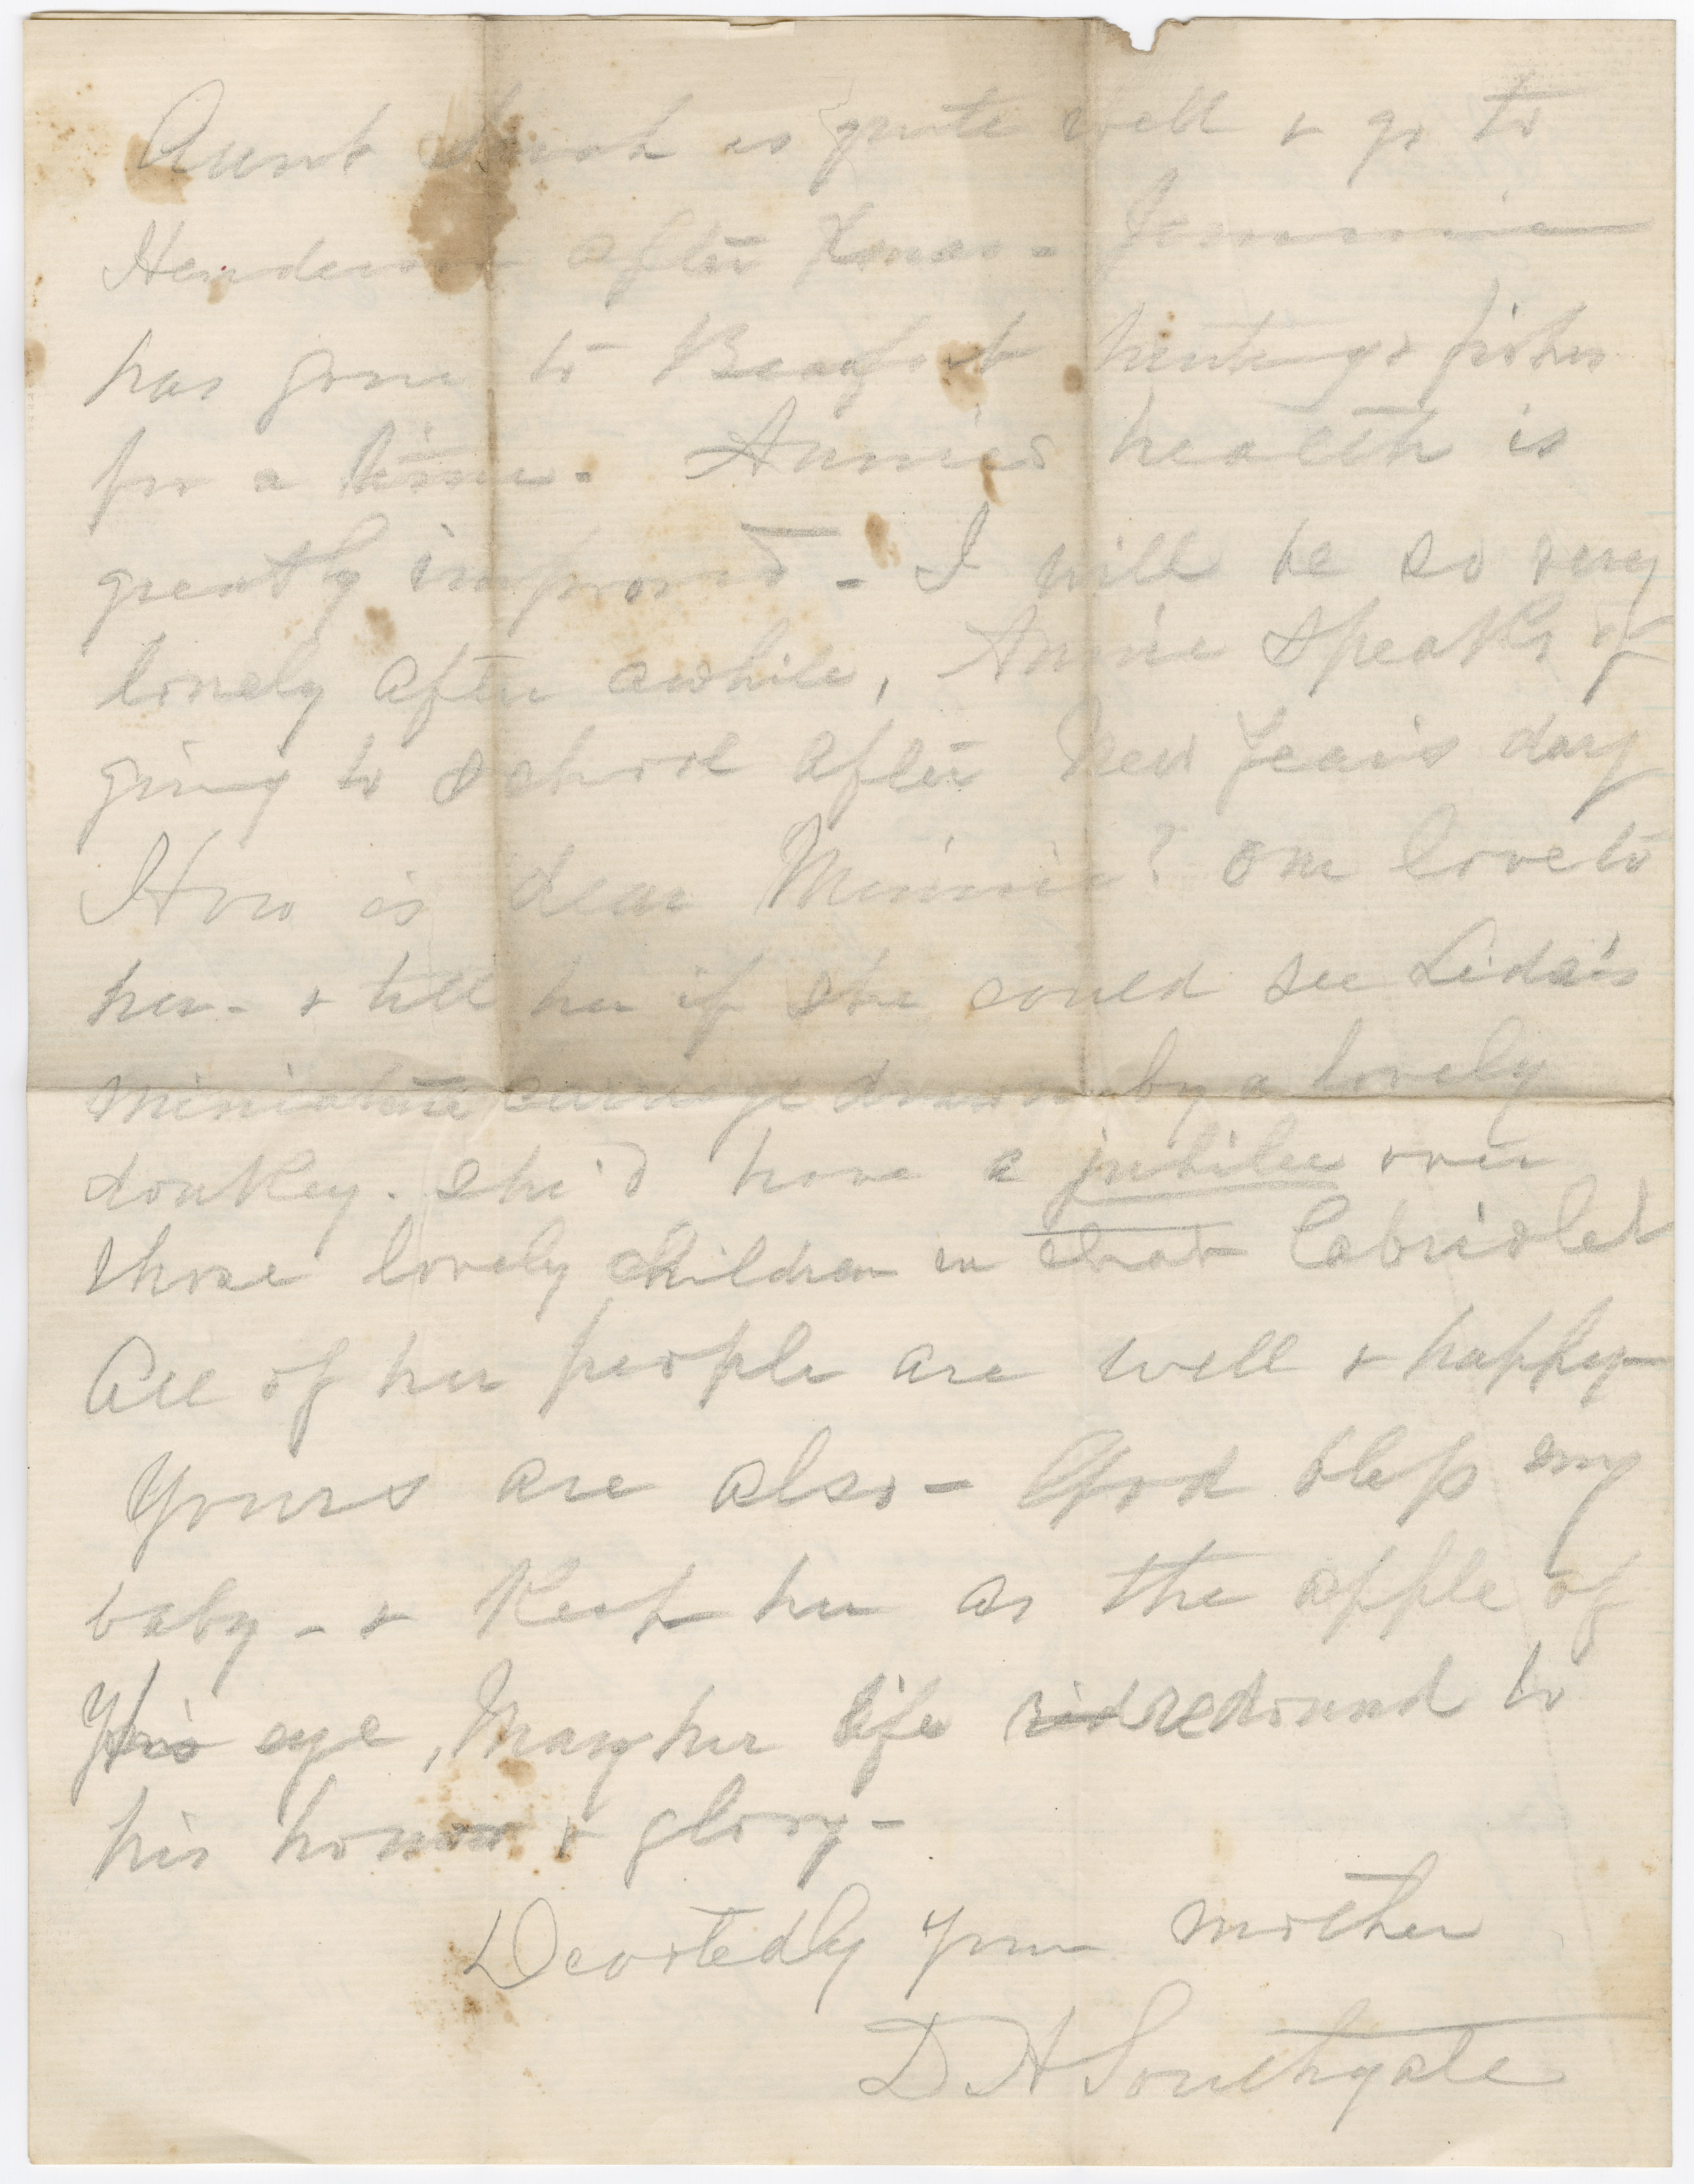 Aunt is quite well & go to
Henderson after Xmas - Jemmie
has gone to Beaufort hunting & fisher
for a time - Annies health is
greatly improved - I will be so very
lonely after awhile, Annie speaks of
going to school after New Years day
How is dear Minnie? our love to
her - & tell her if she could see Lida's
miniature carriage drawn by a lovely
donkey. She'd have a jubilee over
those lovely children in that Cabriolet
All of her people are well & happy -
Yours are also - God bless my
baby - & Keep her as the apple of
His eye, May her life redound to
his honor & glory -
Devotedly your mother
D H Southgate